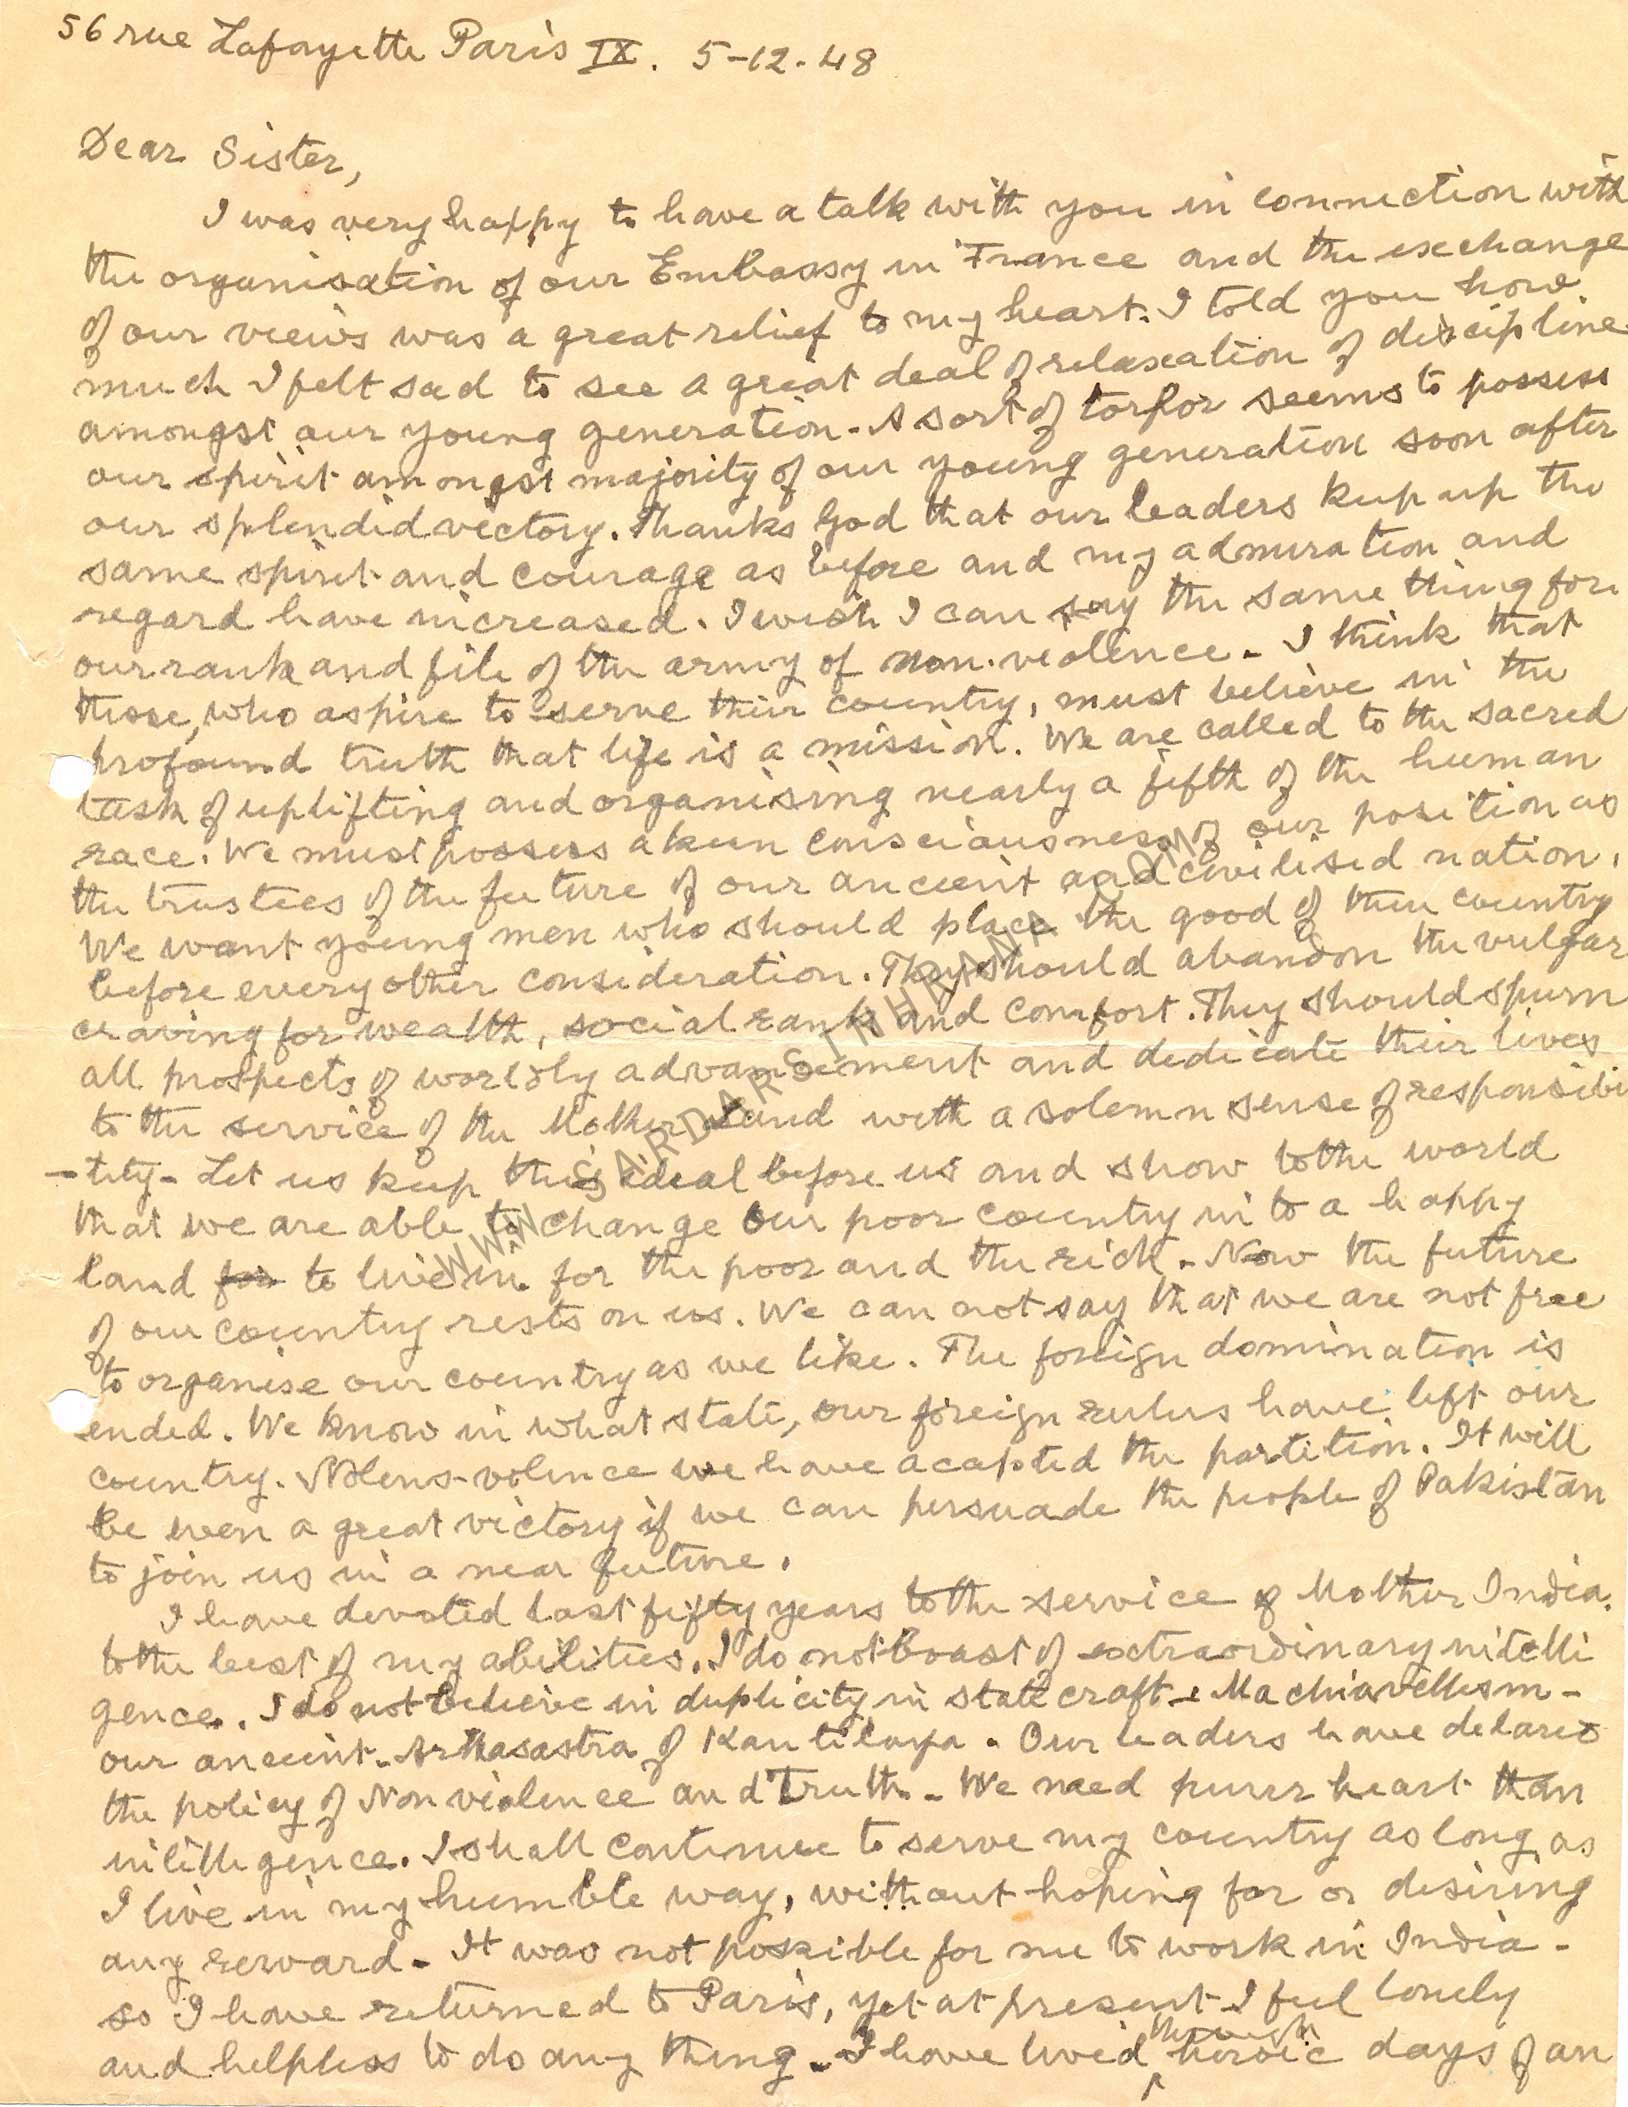 56 rue Lafayette Paris IX. 5-12-48
Dear Sister,
I was very happy to have a talk with you in connection with
the organisation of our Embassy in France and the exchange
of our views was a great relief to my heart. I told you how
much I felt sad to see a great deal of relaxation of discipline
amongst our young generation. A sort of torpor seems to possess
our spirit amongst majority of our young generation soon after
our splendid victory. Thanks God that our leaders keep up the
same spirit and courage as before and my admiration and
regard have increased. I wish I can say the same thing for
our rank and file of the army of non-violence. I think that
those, who aspire to serve their country, must believe in the
profound truth that life is a mission. We are called to the sacred
task of uplifting and organising nearly a fifth of the human
race. We must possess a keen consciousness of our position as
the trustees of the future of our ancient and civilised nation.
We want young men who should place the good of their country
before every other consideration. They should abandon the vulgar
craving for wealth, social rank and comfort. They should spurn
all prospects of worldly advancement and dedicate their lives
to the service of the Mother Land with a solemn sense of responsibi
-lity. Let us keep this ideal before us and show to the world
that we are able to change our poor country in to a happy
land for to live in for the poor and the rich. Now the future
of our country rests on us. We can not say that we are not free
to organise our country as we like. The foreign domination is
ended. We know in what state, our foreign rulers have left our
country. Nolens-volence we have acapted the partition. It will
be even a great victory if we can persuade the people of Pakistan
to join us in a near future.
I have devoted last fifty years to the service of Mother India.
to the best of my abilities. I do not boast of extraordinary intelli
gence. I do not believe in duplicity in state craft. Machiavellism-
our ancient Arthasastra of Kautilaya. Our leaders have delared
the policy of Non violence and Truth. We need purer heart than
intelligence. I shall continue to serve my country as long as
I live in my humble way, without hoping for or desiring
any reward. It was not possible for me to work in India-
so I have returned to Paris, yet at present I feel lonely
and helpless to do any thing. I have lived through heroic days of an
WWW.SARDARSINHRANA.COM